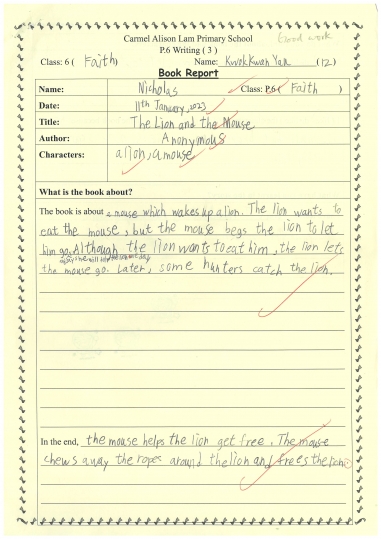 Good work
Carmel Alison Lam Primary School
P.6 Writing ( 3 )
Class: 6 ( Faith ) Name: Kwok Kwan Yak (12)
Book Report
Name: Nicholas Class: P.6 ( Faith )
Date: 11th January, 2023
Title: The Lion and the Mouse
Author: Anonymous
Characters: a lion, a mouse
What is the book about?
The book is about a mouse which wakes up a lion. The lion wants to
eat the mouse, but the mouse begs the lion to let
him go. Although the lion wants to eat him, the lion lets
the mouse go. Later, some hunters catch the lion.
In the end, the mouse helps the lion get free. The mouse
chews away the ropes around the lion and frees the lion.